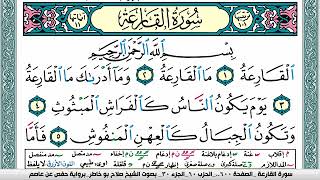 سُورَةُ القَارِعَةِ
بِسْمِ اللَّهِ الرَّحْمَٰنِ الرَّحِيمِ
الْقَارِعَةُ ١ مَا الْقَارِعَةُ ٢ وَمَا أَدْرَىٰكَ مَا الْقَارِعَةُ
٣ يَوْمَ يَكُونُ النَّاسُ كَالْفَرَاشِ الْمَبْثُوثِ ٤
وَتَكُونُ الْجِبَالُ كَالْعِهْنِ الْمَنفُوشِ ٥ فَأَمَّا
سورة القارعة _ الصفحة ٦٠٠ _ الحزب ٦٠ _ الجزء ٣٠ _ بصوت الشيخ صلاح بو خاطر _ برواية حفص عن عاصم